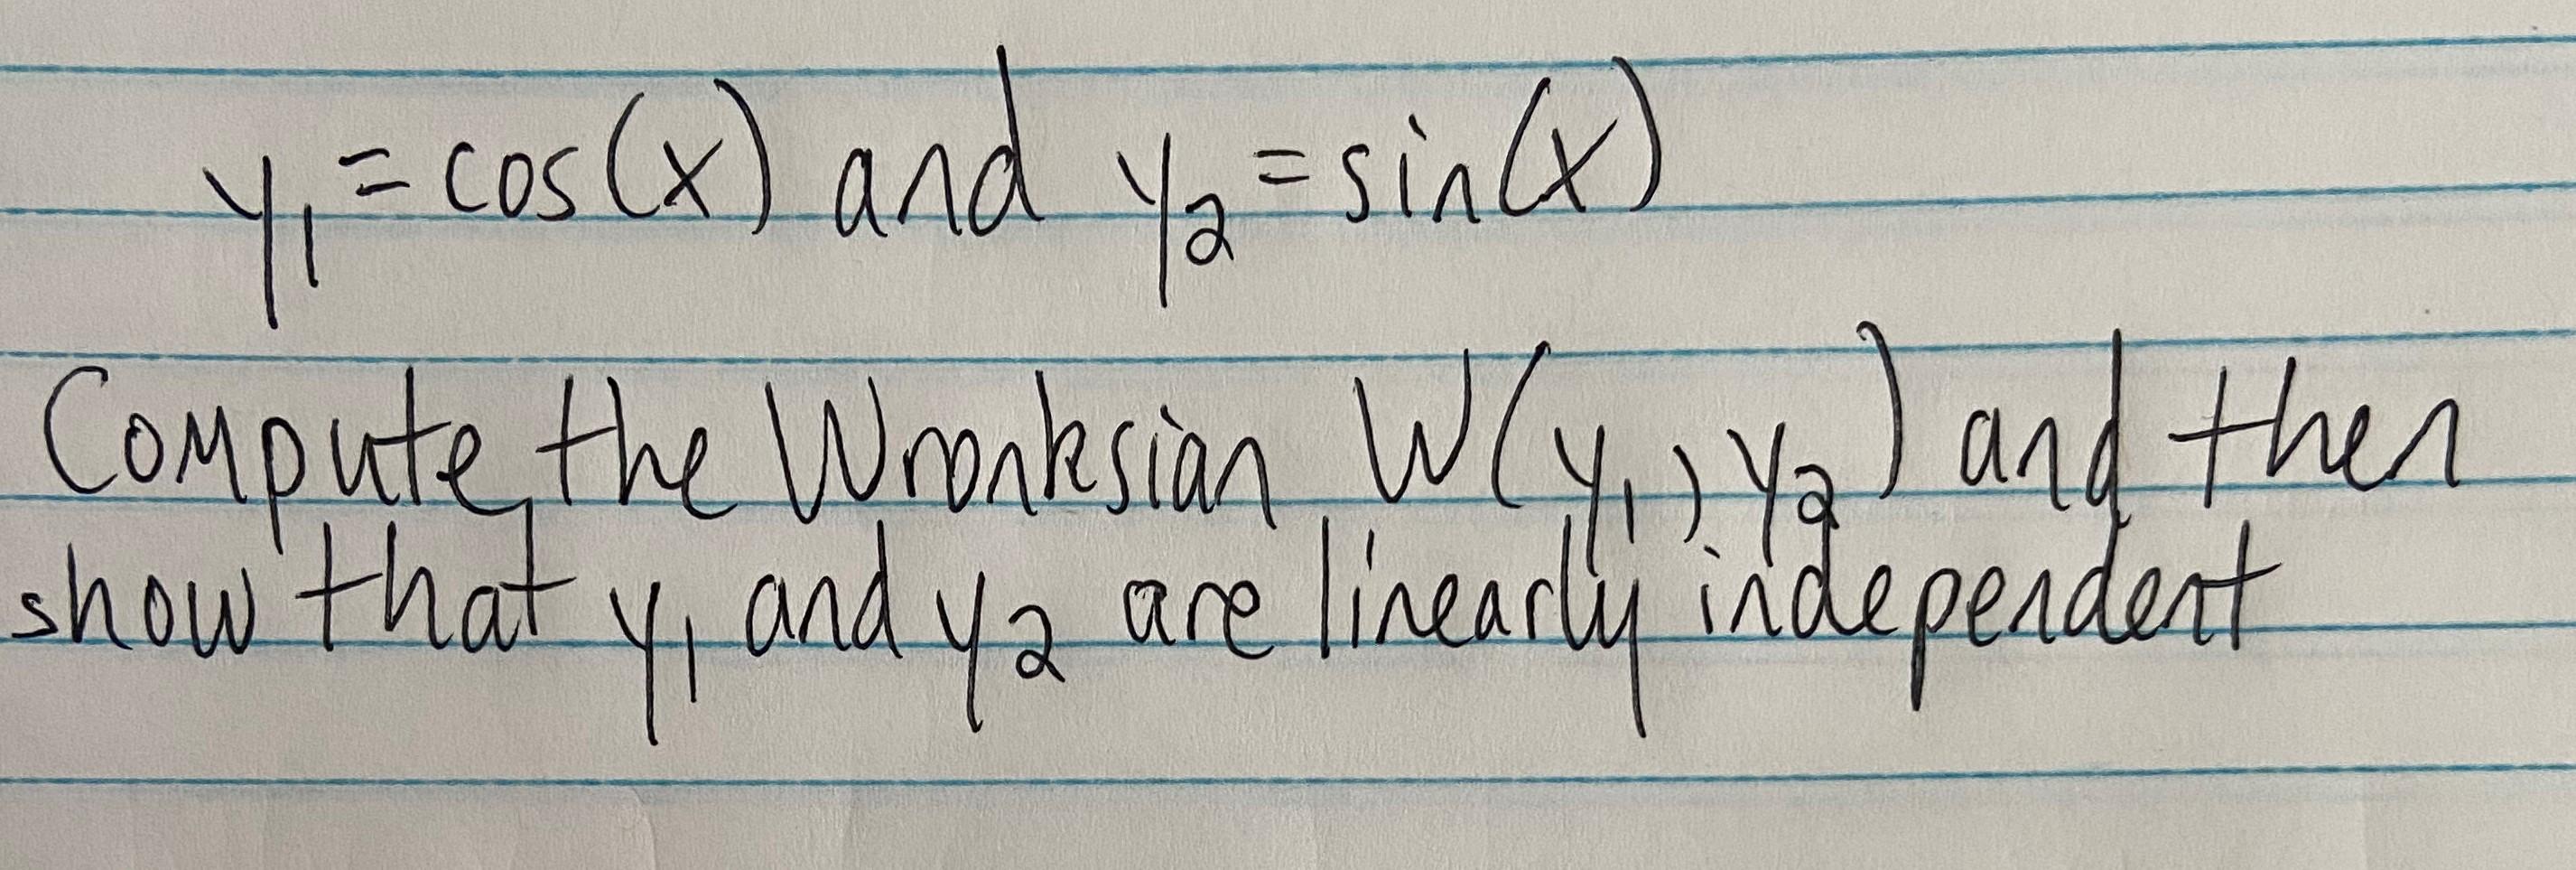 y₁ = cos(x) and y₂ = sin(x)
Compute the Wronksian W(y₁, y₂) and then
show that y₁ and y₂ are linearly independent